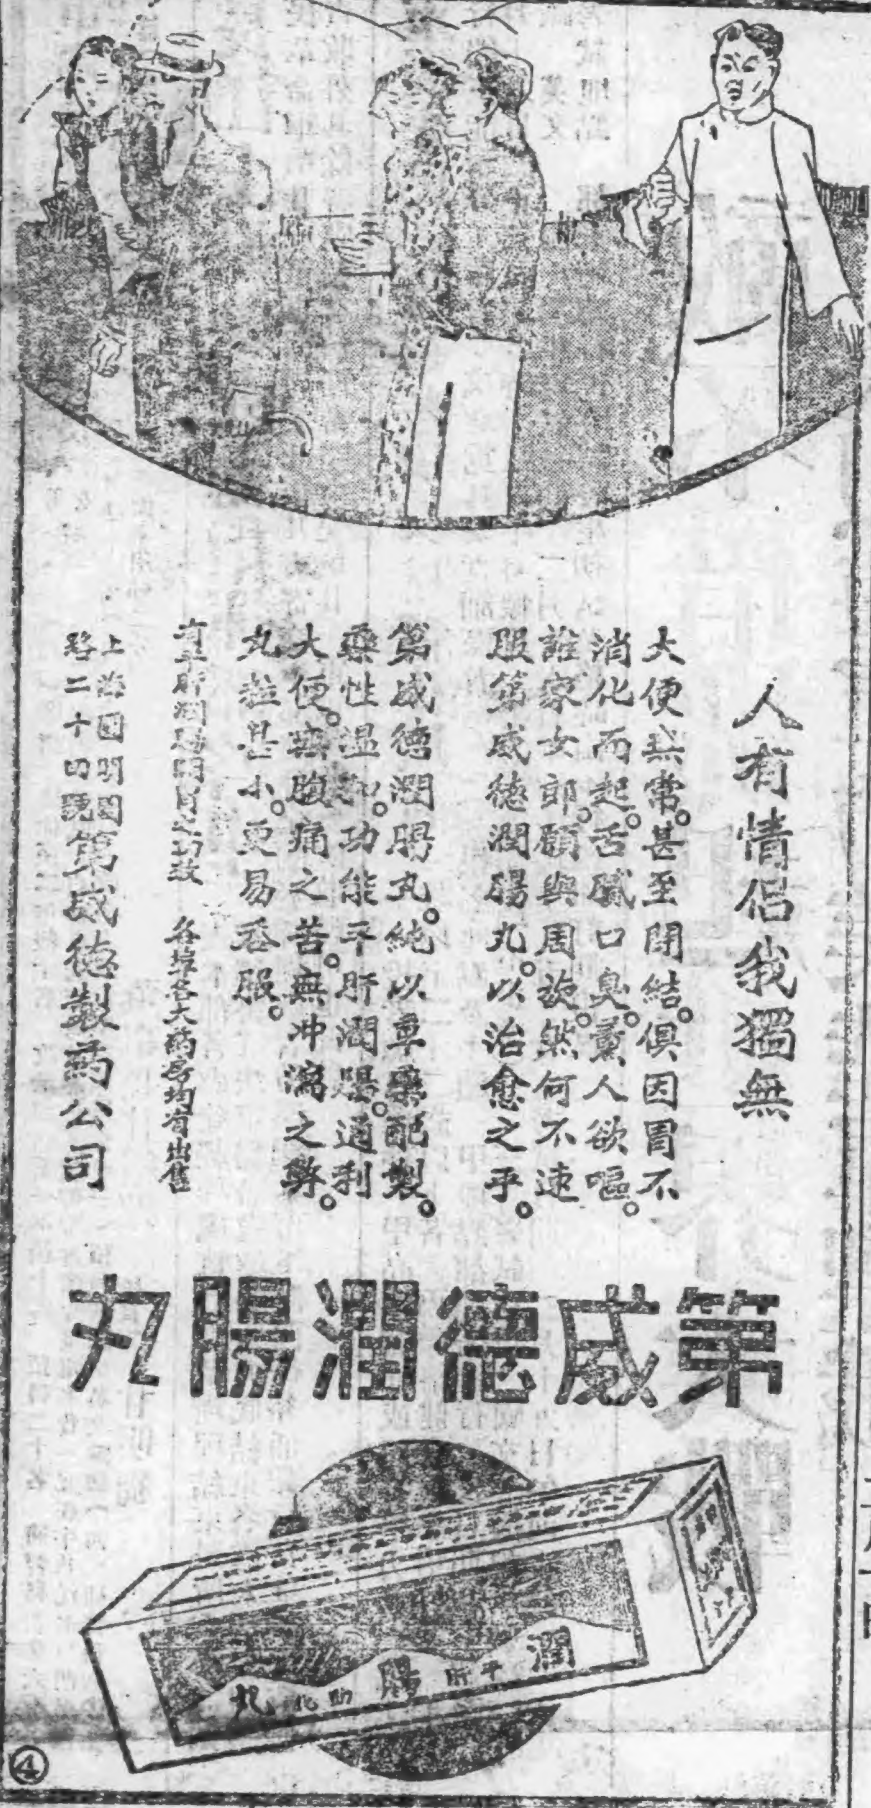 人有情侶我獨無
大便無常。甚至閉結。俱因胃不
消化而起。舌膩口臭。薰人欲嘔。
誰家女郎。願與周旋。然何不速
服第威德潤腸丸。以治愈之乎。
第威德潤腸丸。純以草藥配製。
藥性溫和。功能平肝潤腸。通利
大便。無腹痛之苦。無沖瀉之弊。
丸粒甚小。更易吞服。
有平肝潤腸開胃之功效 各埠各大藥房均有出售
上海圓明園
路二十四號
第威德製葯公司
第威德潤腸丸
潤 平肝 腸 助化 丸
④